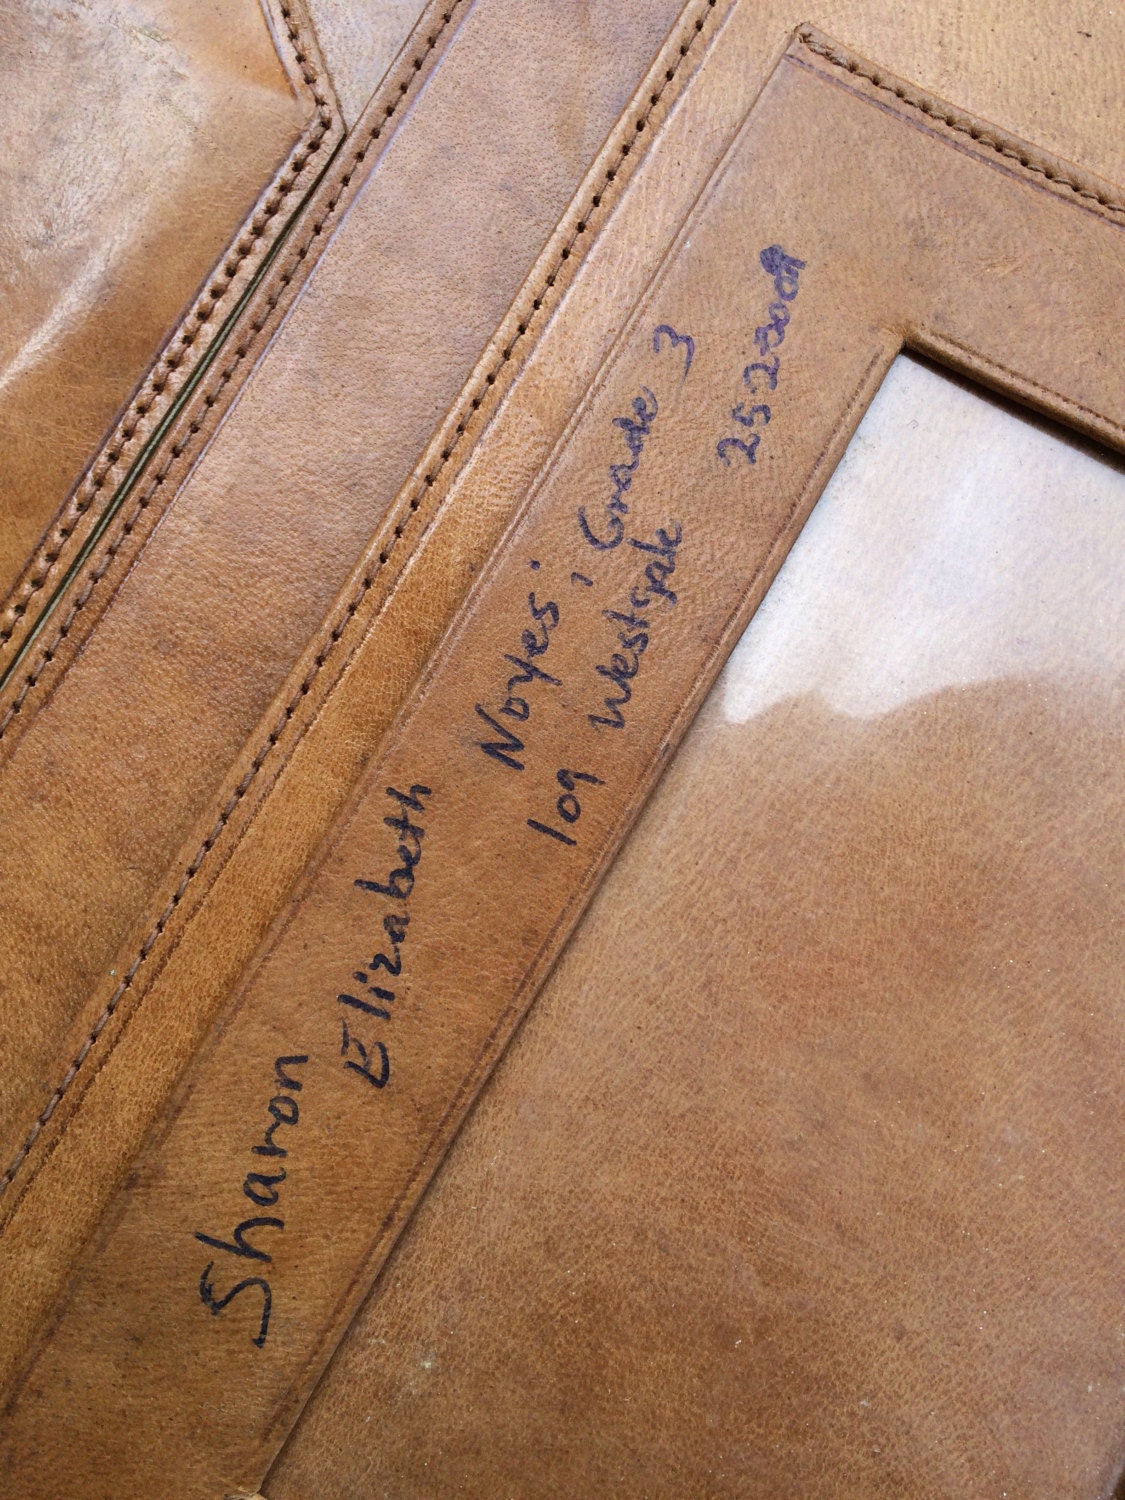 Sharon Elizabeth Noyes, Grade 3
109 Westgate 252